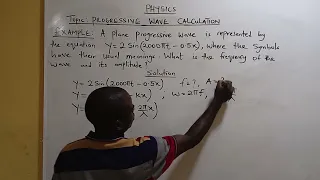 PHYSICS
Topic: PROGRESSIVE WAVE CALCULATION
EXAMPLE: A plane progressive wave is represented by
the equation Y = 2 Sin (2000πt - 0.5x), where the Symbols
have their usual meanings. What is the frequency of the
wave and its amplitude?
Solution
Y = 2 Sin (2000πt - 0.5x) f = ?, A = ?
Y = Kx) , ω = 2πf,
Y = 2πx/λ)